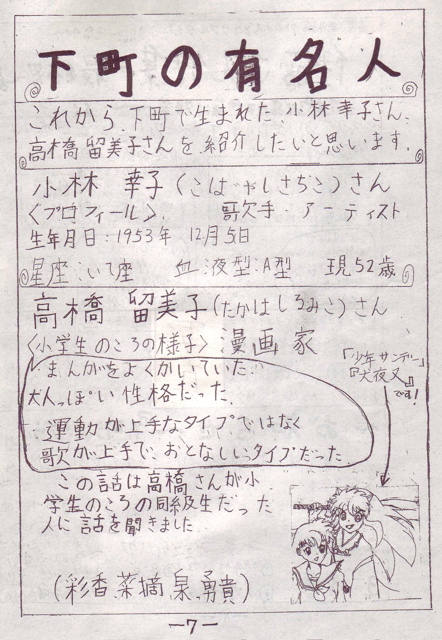 下町の有名人
これから、下町で生まれた、小林幸子さん、
高橋留美子さんを紹介したいと思います。
小林 幸子(こばやしさちこ)さん
〈プロフィール〉 歌手・アーティスト
生年月日:1953年 12月5日
星座:いて座 血液型:A型 現52歳
高橋 留美子(たかはしるみこ)さん
〈小学生のころの様子〉漫画家
・まんがをよくかいていた。
大人っぽい性格だった。
・運動が上手なタイプではなく
歌が上手で、おとなしいタイプだった。
「少年サンデー」
『犬夜叉』
です!
この話は高橋さんが小
学生のころの同級生だった
人に話を聞きました。
(彩香、菜摘、泉、勇貴)
―7―